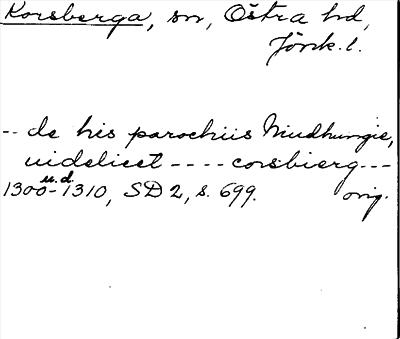 Korsberga, sn, Östra hd,
Jönk. l.
-- de his parochiis Niudhungie,
uidelicet ---- corsbierg ---
u. d.
1300-1310, SD 2, s. 699. orig.